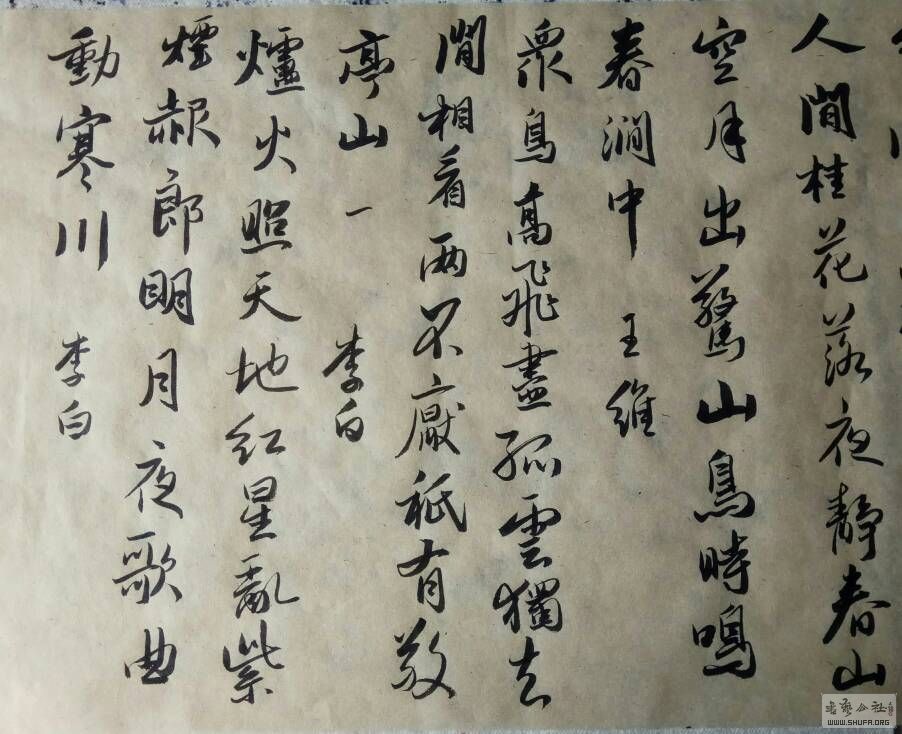 人閒桂花落夜靜春山
空月出驚山鳥時鳴
春澗中 王維
眾鳥高飛盡孤雲獨去
閒相看兩不厭祇有敬
亭山一 李白
爐火照天地紅星亂紫
煙赧郎明月夜歌曲
動寒川 李白
书艺公社
WWW.SHUFA.ORG